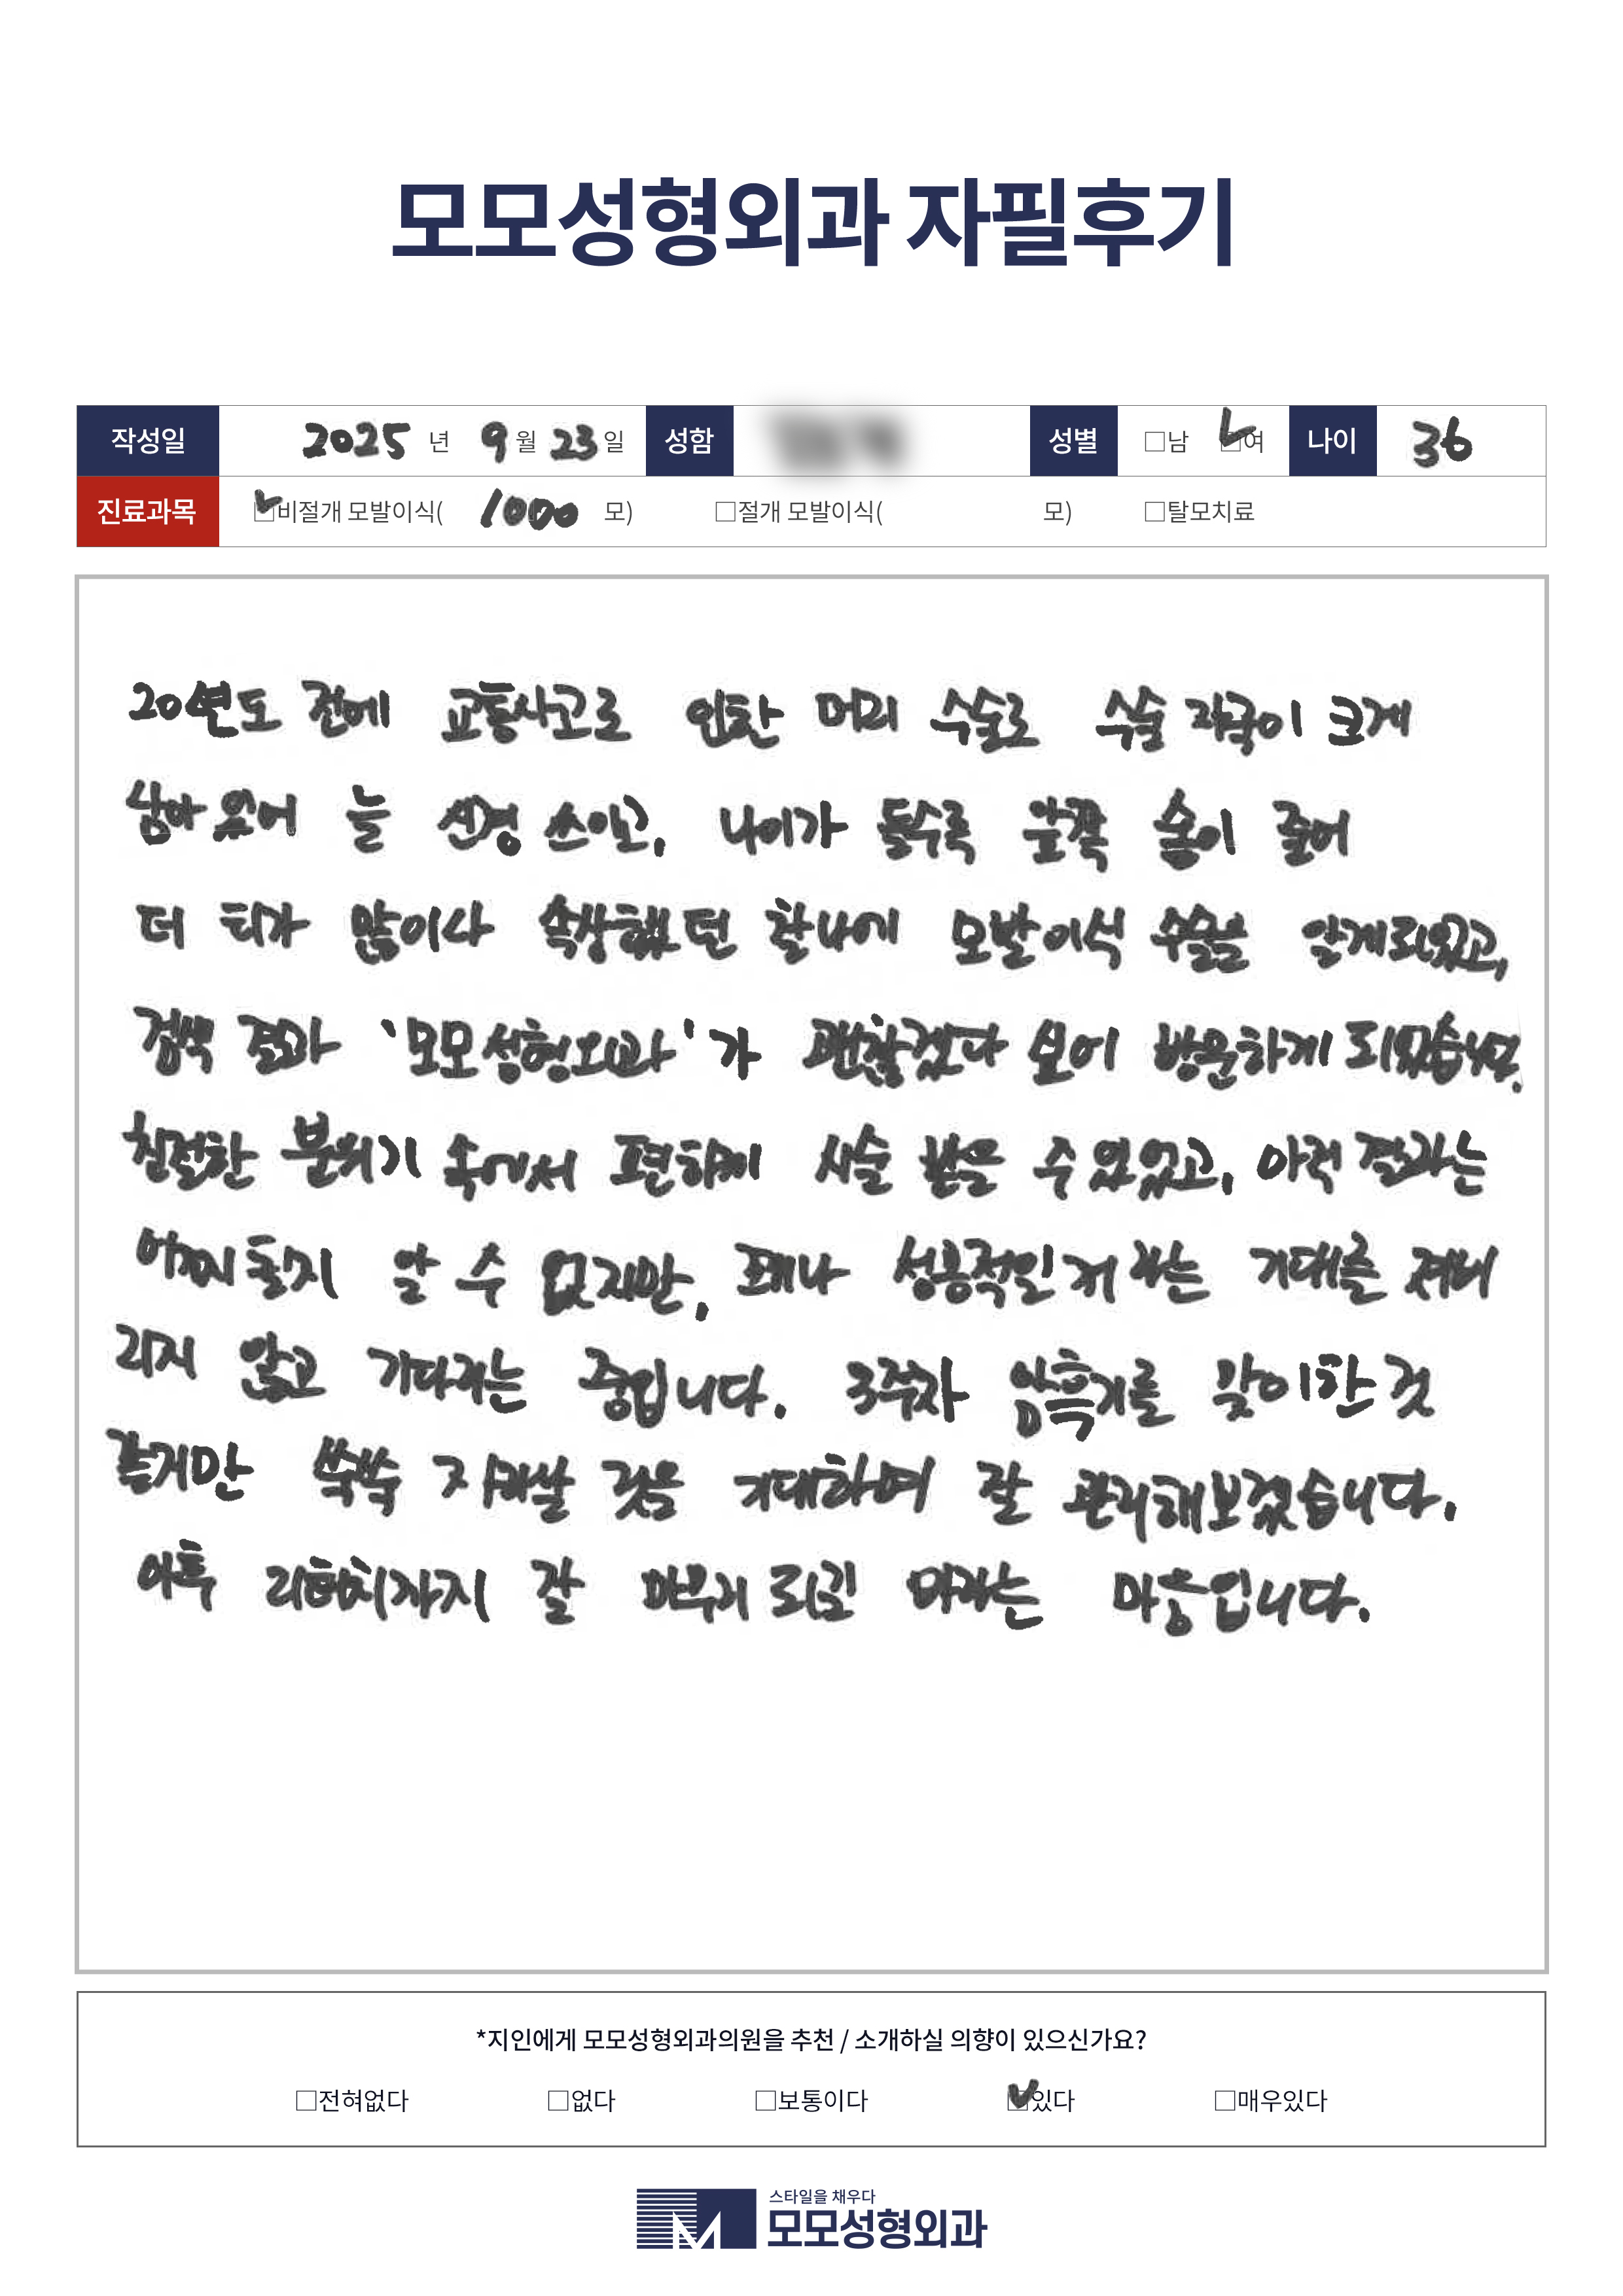 모모성형외과 자필후기
작성일 2025 년 9 월 23 일 성함 성별 □남 ☑여 나이 36
진료과목 ☑비절개 모발이식( 1000 모) □절개 모발이식( 모) □탈모치료
20년도 전에 교통사고로 인한 머리 수술로 수술 자국이 크게
남아 있어 늘 신경 쓰이고, 나이가 들수록 앞쪽 숱이 줄어
더 티가 많이나 속상했던 찰나에 모발이식 수술을 알게되었고,
검색 결과 '모모성형외과'가 괜찮겠다 싶어 방문하게 되었습니다.
친절한 분위기 속에서 편하게 시술 받을 수 있었고, 아직 결과는
어찌될지 알 수 없지만, 꽤나 성공적일거 라는 기대를 저버
리지 않고 기다리는 중입니다. 3주차 암흑기를 맞이한 것
같지만 쑥쑥 자라날 것을 기대하며 잘 관리해보겠습니다.
이후 리터치까지 잘 마무리 되길 바라는 마음입니다.
*지인에게 모모성형외과의원을 추천 / 소개하실 의향이 있으신가요?
□전혀없다 □없다 □보통이다 ☑있다 □매우있다
스타일을 채우다
모모성형외과